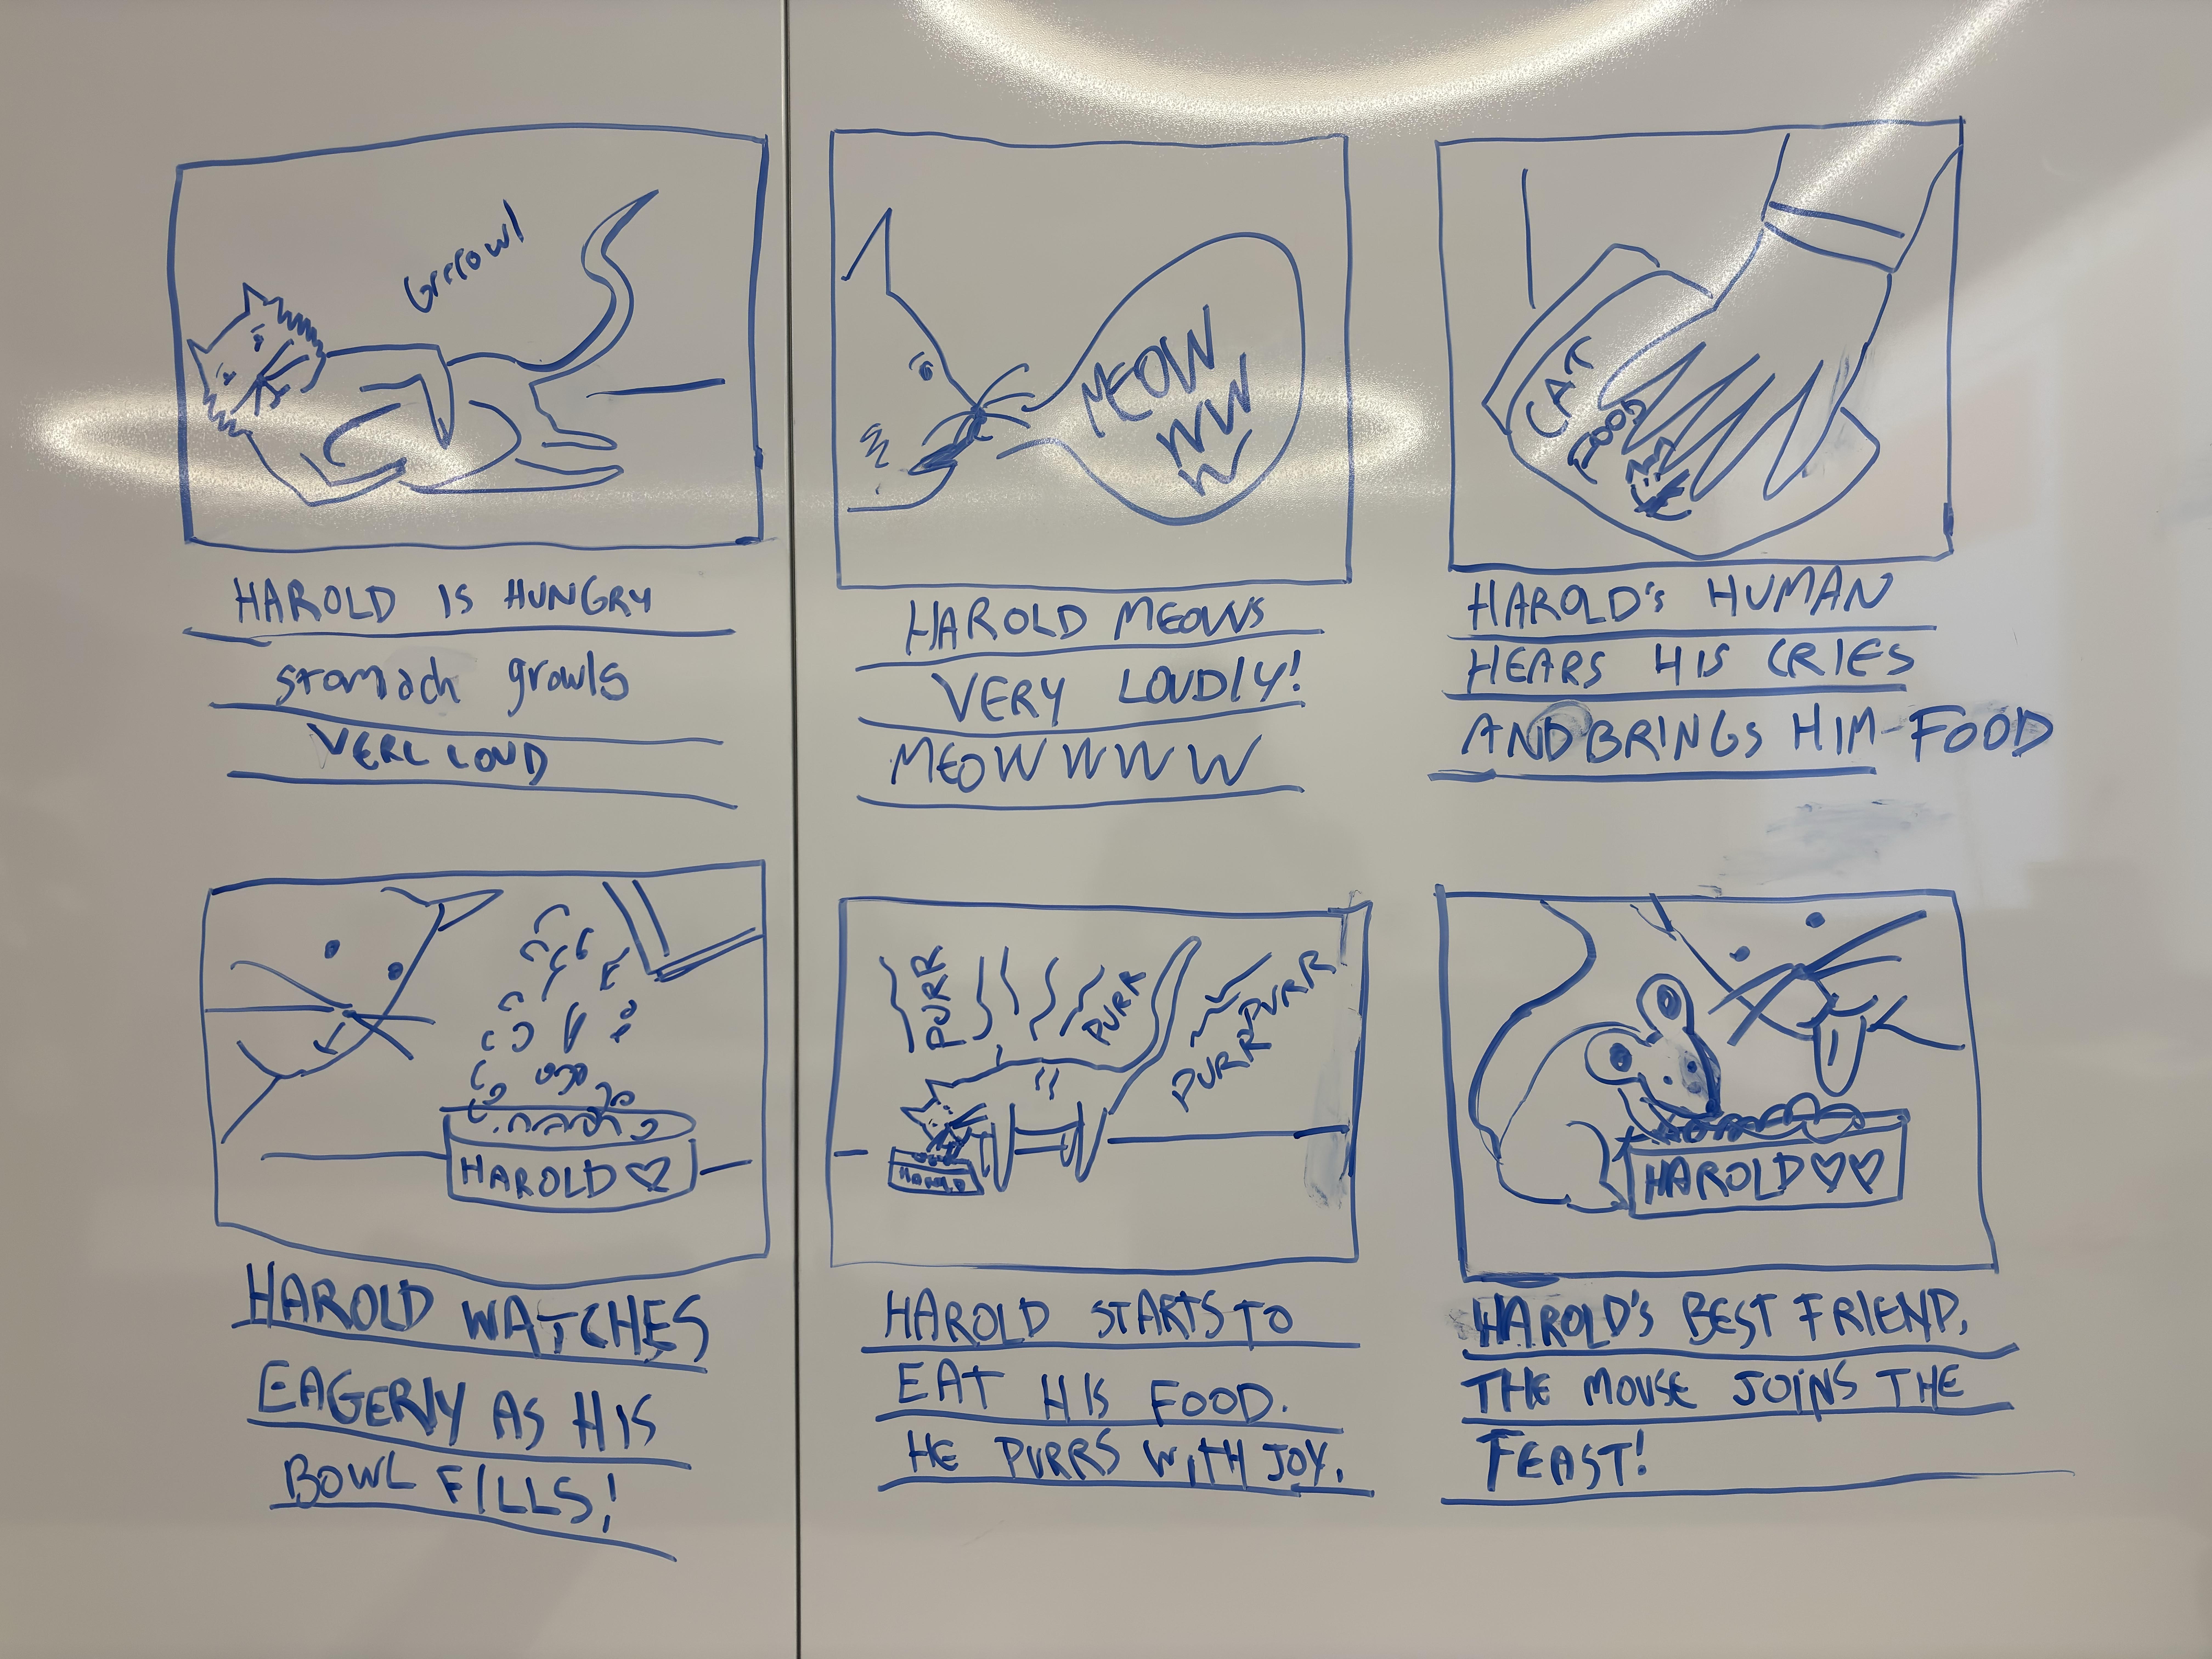 Grrrowl
HAROLD IS HUNGRY
stomach growls
VERL LOUD
MEOW
WW
W
HAROLD MEOWS
VERY LOUDLY!
MEOWWWW
CAT
FOOD
HAROLD'S HUMAN
HEARS HIS CRIES
AND BRINGS HIM-FOOD
HAROLD♡
HAROLD WATCHES
EAGERLY AS HIS
BOWL FILLS!
PURR
PURR
PURR
PURR
HAROLD
HAROLD STARTS TO
EAT HIS FOOD.
HE PURRS WITH JOY.
HAROLD♡♡
HAROLD'S BEST FRIEND,
THE MOUSE JOINS THE
FEAST!